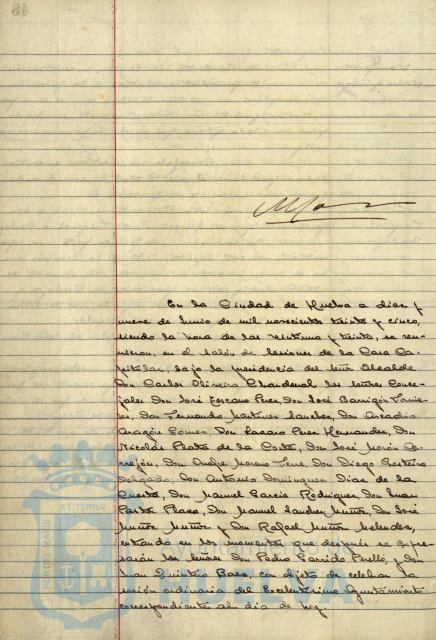 En la Ciudad de Huelva a diez y
nueve de Junio de mil novecientos treinta y cinco,
siendo la hora de las veintiuna y treinta, se reu-
nieron, en el salón de sesiones de la Casa Ca-
pitular, bajo la presidencia del Señor Alcalde
Don Carlos Oliveira Chardenal los señores Conce-
jales Don José Pérez, Don José Barrigón Fornie-
les, Don Fernando Martínez Sánchez, Don Arcadio
Aragón Gómez, Don Lázaro Pérez Hernández, Don
Nicolás Plata de la Corte, Don José Morón
Don Moreno Don Diego
Delgado, Don Antonio Domínguez Díaz de la
Cuesta, Don Manuel García Rodríguez, Don Juan
Don Manuel Muñoz, Don José
Muñoz Muñoz y Don Rafael Muñoz Melendez,
entrando en los momentos que después se expre-
sarán los señores Don Pedro Garrido Perelló, y Don
Juan Quintero Baez, con objeto de celebrar la
sesión ordinaria del Excelentísimo Ayuntamiento
correspondiente al día de hoy.
ET TERRÆ